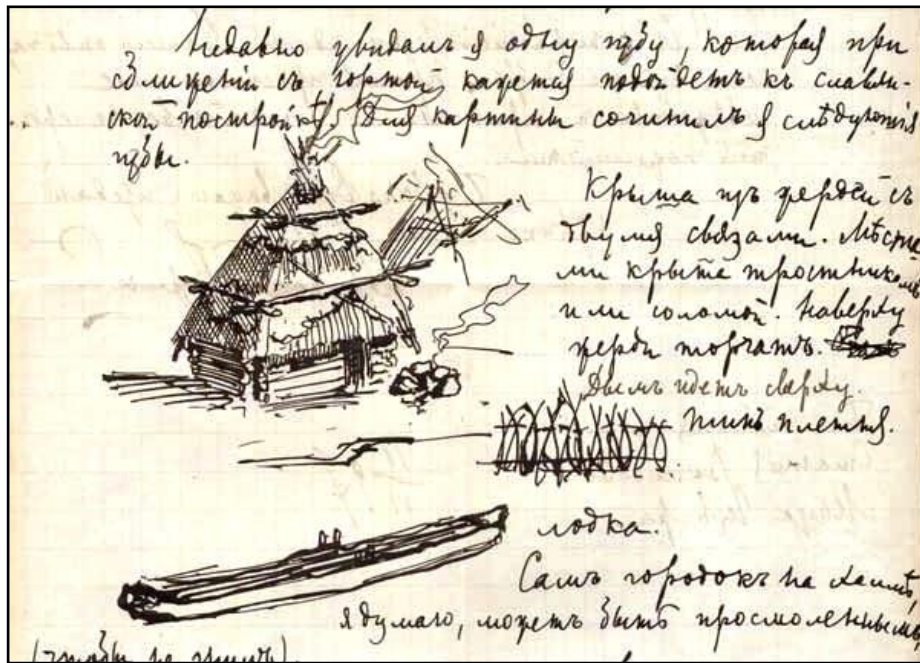 Недавно увидалъ я одну избу, которая при
сближеніи съ юртой кажется подойдетъ къ славян-
ской постройкѣ. Для картины сочинилъ я слѣдующія
избы.
Крыша изъ жердей съ
двумя связами. Мѣста-
ми крыта тростникомъ
или соломой. Наверху
жерди торчатъ.
Дымъ идетъ сверху.
Тынъ плетня.
лодка.
Самъ городокъ на холмѣ,
я думаю, можетъ быть просмоленнымъ
(чтобы не гнилъ).